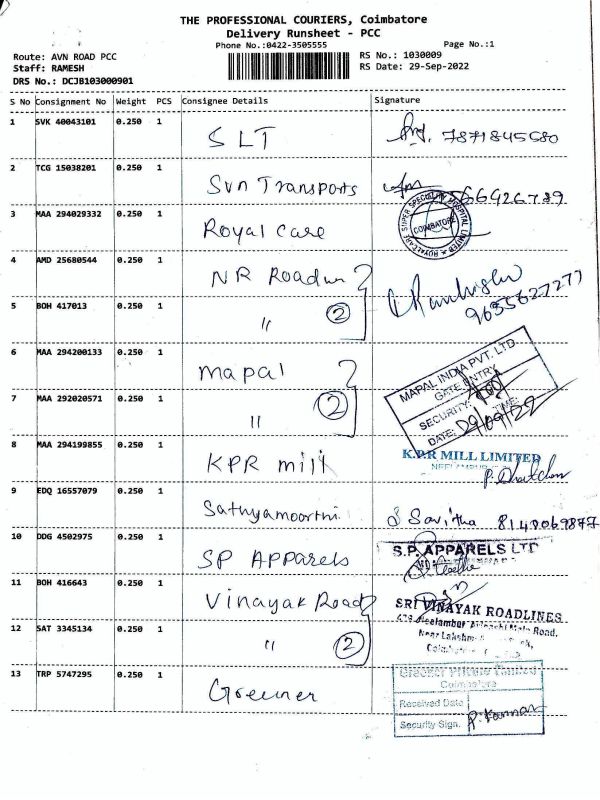 THE PROFESSIONAL COURIERS, Coimbatore
Delivery Runsheet - PCC
Phone No.:0422-3505555 Page No.:1
Route: AVN ROAD PCC RS No.: 1030009
Staff: RAMESH RS Date: 29-Sep-2022
DRS No.: DCJB103000901
S No Consignment No Weight PCS Consignee Details Signature
1 SVK 40043101 0.250 1 SLT 7871845580
2 TCG 15038201 0.250 1 Sun Transports
3 MAA 294029332 0.250 1 Royal Care ROYAL CARE SUPER SPECIALITY HOSPITAL LIMITED COIMBATORE
4 AMD 25680544 0.250 1 NR Roadw
5 BOH 417013 0.250 1 〃 2 9655627277
6 MAA 294200133 0.250 1 mapal MAPAL INDIA PVT. LTD
GATE ENTRY
7 MAA 292020571 0.250 1 〃 2 SECURITY:
DATE: 29/09/22 TIME:
8 MAA 294199855 0.250 1 KPR mill K.P.R MILL LIMITED
9 EDQ 16557079 0.250 1 Sathyamoorthi Savitha 8140069877
10 DDG 4502975 0.250 1 SP APParels S.P. APPARELS LTD
11 BOH 416643 0.250 1 Vinayak Road SRI VINAYAK ROADLINES
Neelambur Avinashi Main Road,
12 SAT 3345134 0.250 1 〃 2 Near Lakshm
13 TRP 5747295 0.250 1 Greiner Limited
Coimbatore
Received Date
Security Sign. P. Kannan